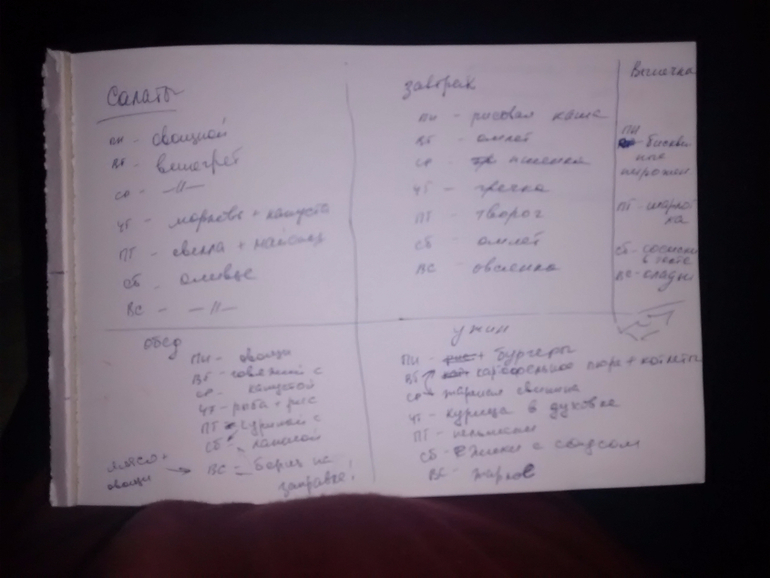 Салаты
пн - овощной
вт - винегрет
ср - —//—
чт - морковь + капуста
пт - свекла + майонер
сб - оливье
вс - —//—
завтрак
пн - рисовая каша
вт - омлет
ср - пшенка
чт - гречка
пт - творог
сб - омлет
вс - овсянка
Выпечка
пн
- бискви
пирожки
пт - шарлот
ка
сб - сосиски
в тесте
вс - оладьи
обед
пн - овощи
вт - говяжий с
ср - капустой
чт - рыба + рис
пт - куриной с
сб - лапшой
вс - борщ на
заправке!
мясо +
овощи
ужин
пн - + бургеры
вт - картофельное пюре + котлеты
ср - жареная свинина
чт - курица в духовке
пт - пельмени
сб - ёжики с соусом
вс - жаркое